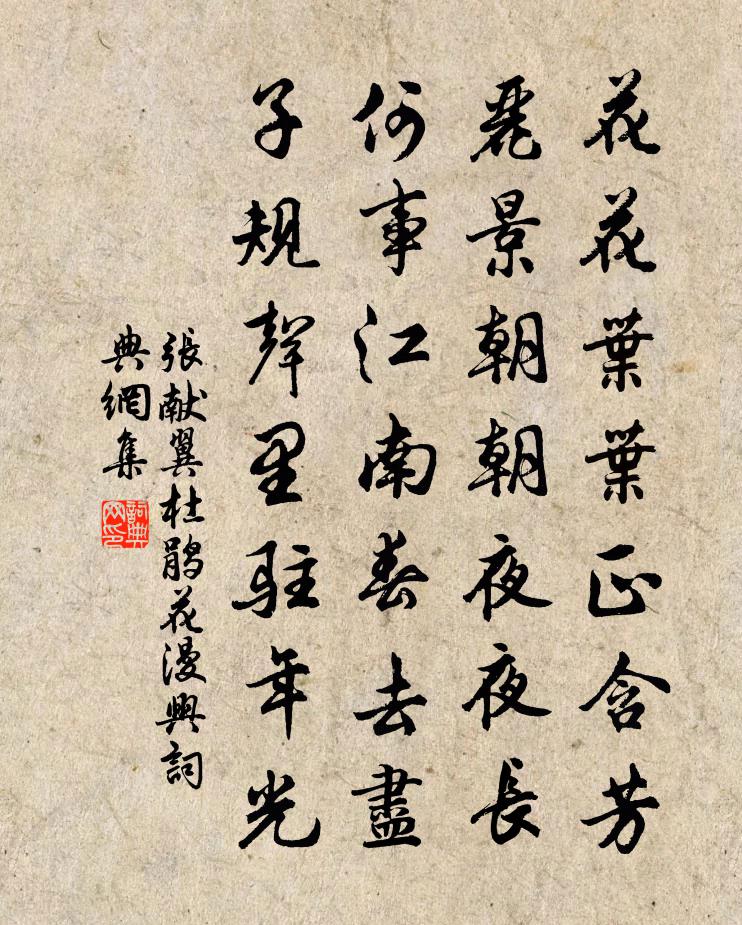 花花葉葉正含芳
麗景朝朝夜夜長
何事江南春去盡
子規聲里駐年光
張献翼杜鹃花漫興詞
典網集
詞典
网印